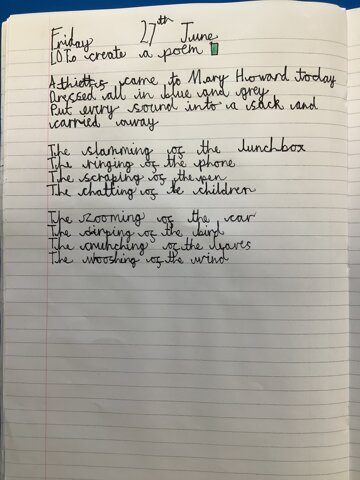 Friday 27th June
LO To create a poem
A thief came to Mary Howard today
Dressed all in blue and grey
Put every sound into a sack and
carried away
The slamming of the lunchbox
The ringing of the phone
The scraping of the pen
The chatting of te children
The zooming of the car
The of the bird
The crunching of the leaves
The wooshing of the wind